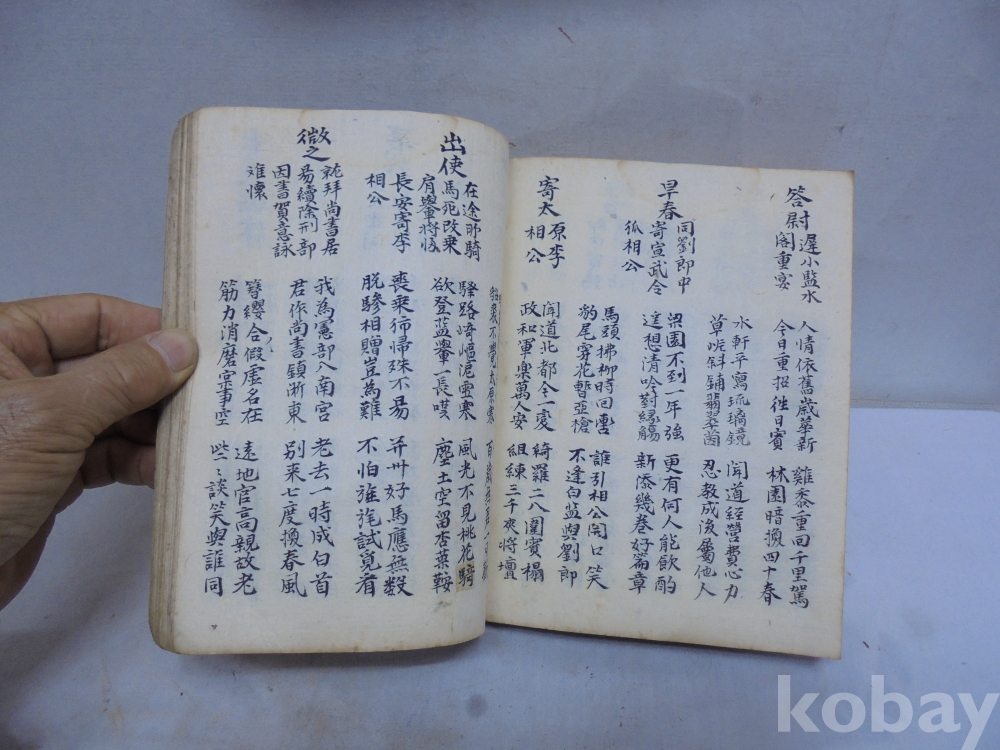 答尉
遲小監水
閣重宴
人情依舊歲華新
今日重招徃日賓
雞黍重回千里駕
林園暗換四十春
水軒平寫琉璃鏡
草岸斜鋪翡翠茵
聞道經營費心力
忍教成後屬他人
早春
同劉郎中
寄宣武令
狐相公
梁園不到一年強
遙想清吟對綠觴
更有何人能飲酌
新添幾卷好篇章
馬頭拂柳時回轡
豹尾穿花暫亞槍
誰引相公開口笑
不逢白監與劉郎
寄太
原李
相公
聞道北都今一變
政和軍樂萬人安
綺羅二八圍賓榻
組練三千夾將壇
裘不覺太原寒
出使
在途所騎
馬死改乘
肩轝將
長安寄李
相公
驛路崎嶇泥雪寒
欲登藍轝一長嘆
風光不見桃花騎
塵土空留杏葉鞍
喪乘行帰殊不易
脫驂相贈豈爲難
并州好馬應無数
不怕旌旄試覓看
微之
就拜尚書居
易續除刑部
因書賀意詠
难懷
我爲憲部入南宮
君作尚書鎮浙東
老去一時成白首
別来七度換春風
簪纓合假虛名在
筋力消磨事空
遠地官高親故老
些々談笑與誰同
kobay